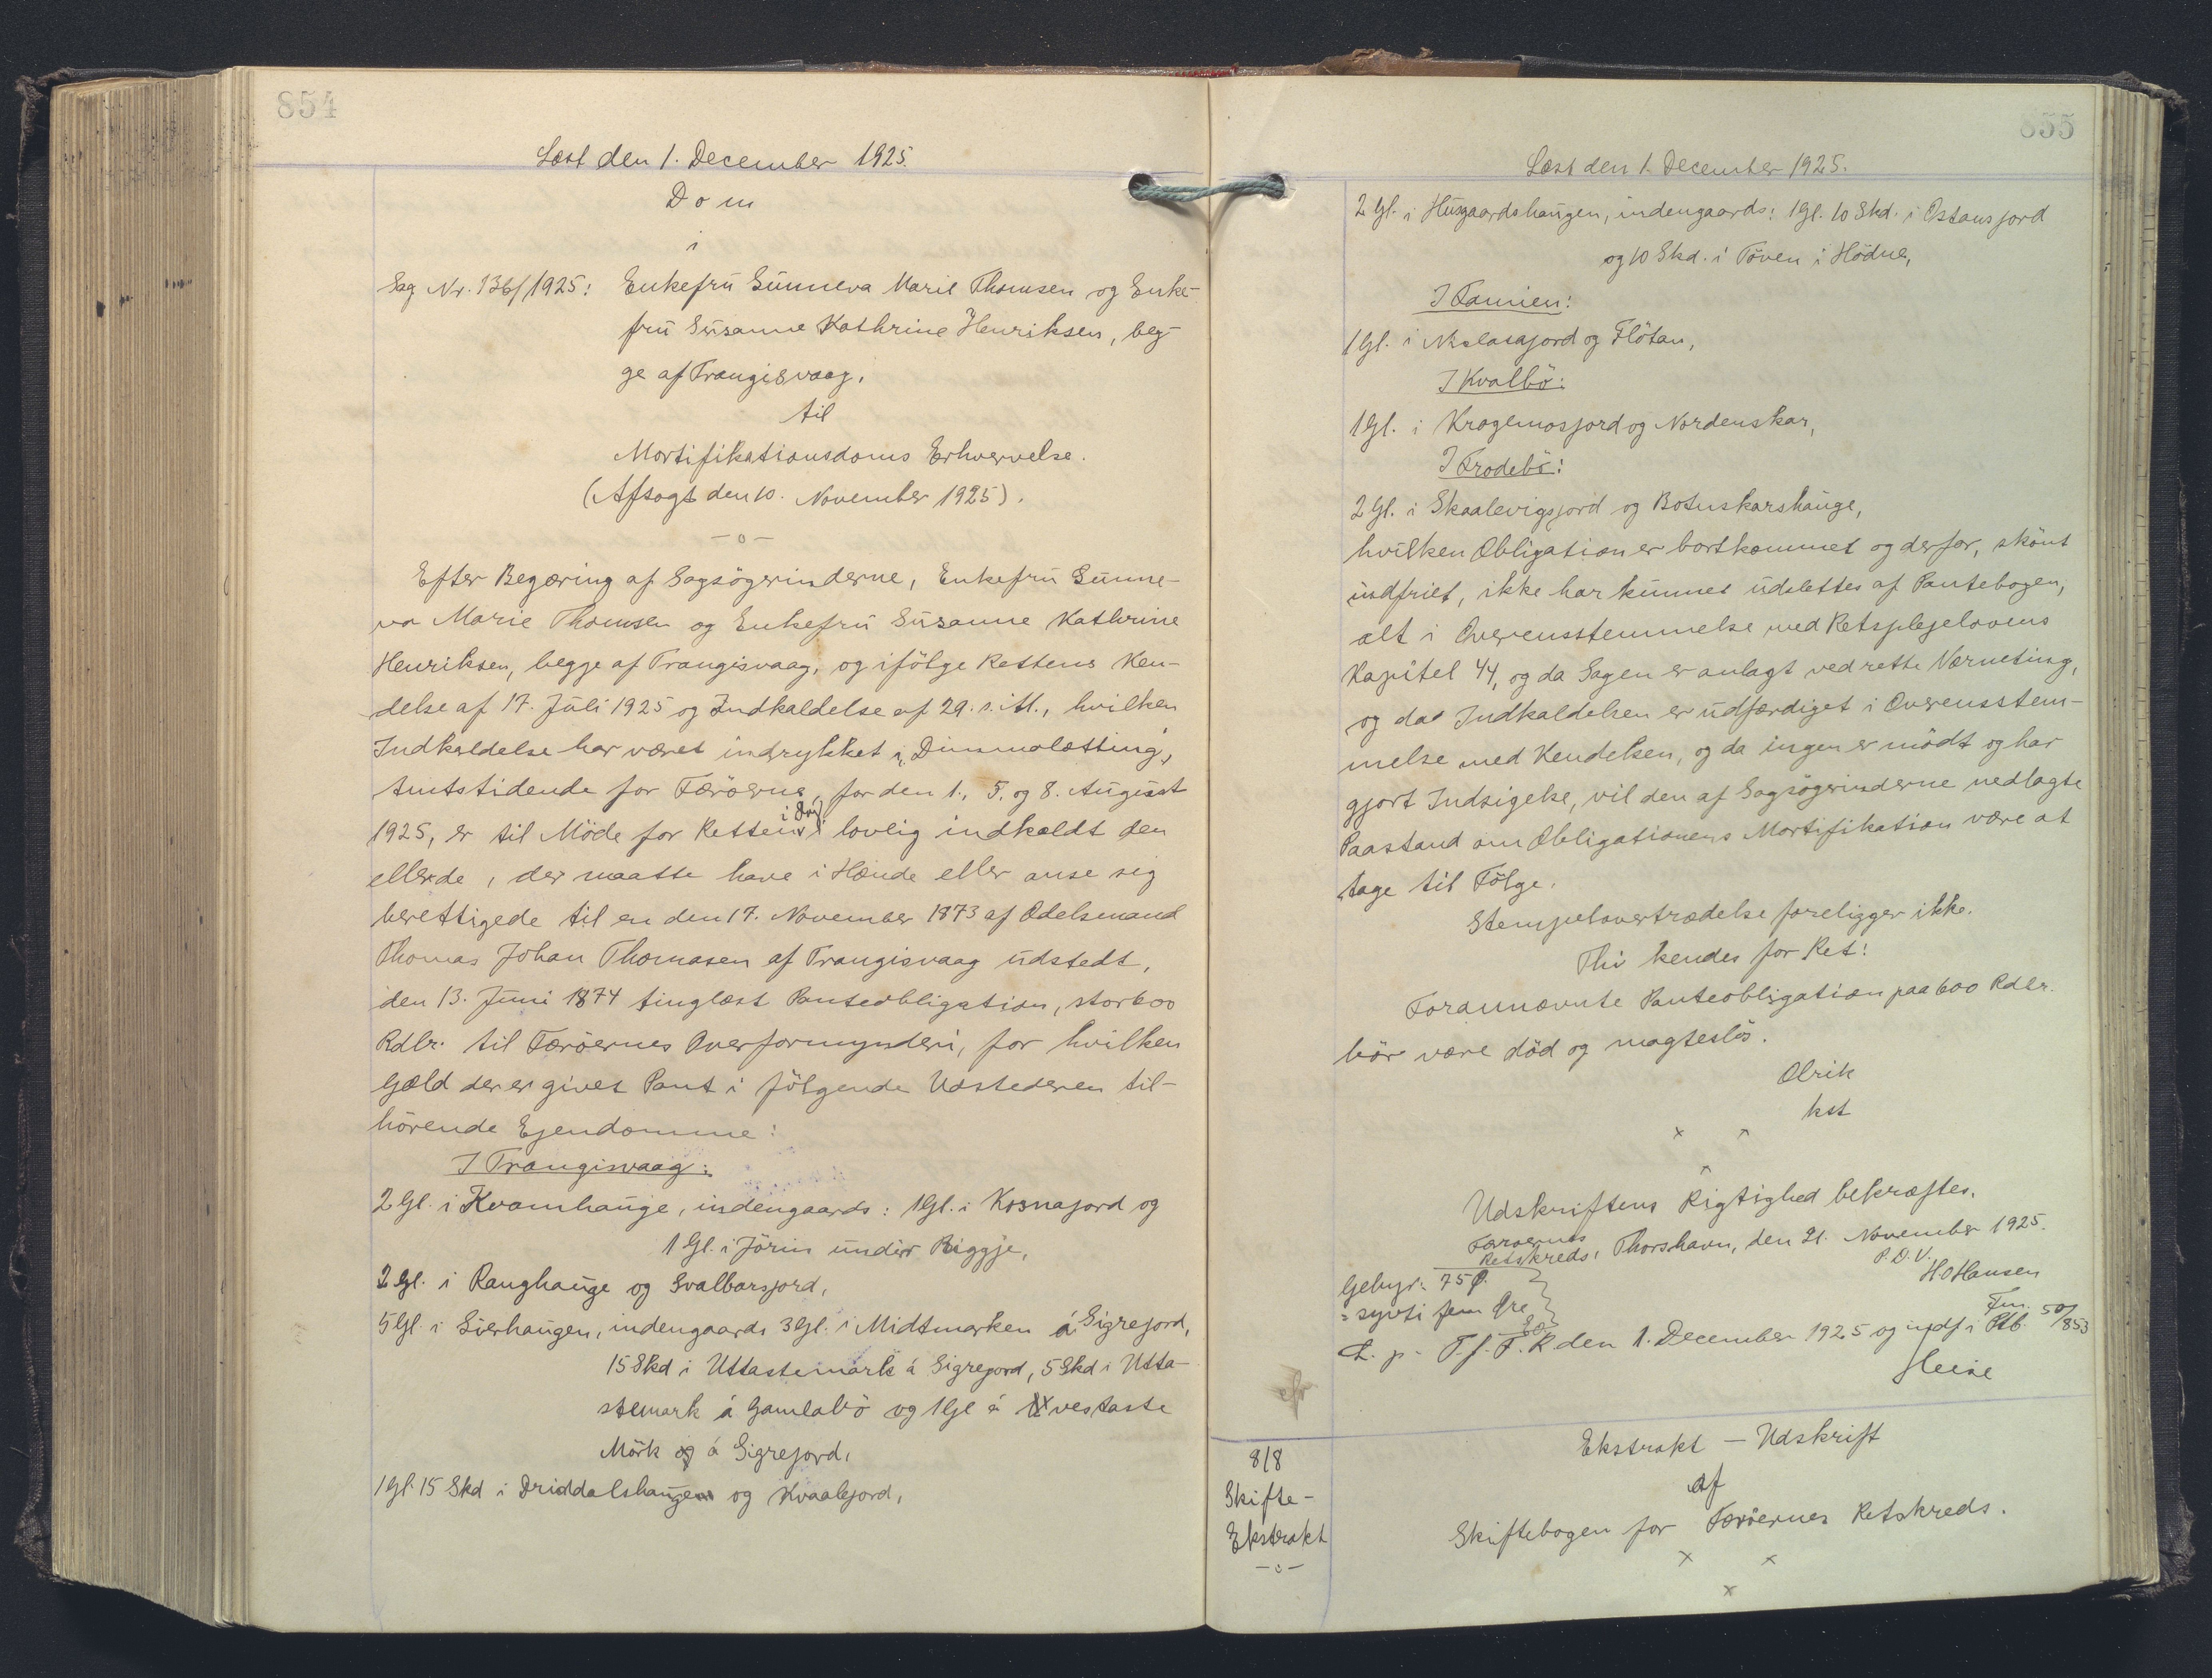 854
Læst den 1. December 1925.
Dom
i
Sag Nr. 136/1925: Enkefrú Súnneva Marie Thomsen og Enke-
frú Súsanne Kathrine Henriksen, beg-
ge af Trangisvaag.
til
Mortifikationsdoms Erhvervelse.
(Afsagt den 10. November 1925).
—o—
Efter Begæring af Sagsögerinderne, Enkefrú Súnne-
va Marie Thomsen og Enkefrú Súsanne Kathrine
Henriksen, begge af Trangisvaag, og ifölge Rettens Ken-
delse af 17. Júli 1925 og Indkaldelse af 29. s. M., hvilken
Indkaldelse har været indrykket i „Dimmalætting",
Amtstidende for Færöerne, for den 1., 5. og 8. Aúgúst
1925, er til Möde for Retten i Dag lovlig indkaldt den
eller de, der maatte have i Hænde eller anse sig
berettigede til en den 17. November 1873 af Odelsmand
Thomas Johan Thomasen af Trangisvaag údstedt,
den 13. Júni 1874 tinglæst Panteobligation, stor 600
Rdlr. til Færöernes Overformynderi, for hvilken
Gæld der er givet Pant i fölgende Udstederen til-
hörende Ejendomme:
I Trangisvaag:
2 Gl. i Kvamhaúge, indengaards: 1 Gl. i Kosnajord og
1 Gl. i Jörin únder Riggje,
2 Gl. i Ranghaúge og Svalbarsjord,
5 Gl. i Lierhaúgen, indengaards 3 Gl. i Midtmarken á Sigrejord,
15 Skd i Uttastemark á Sigrejord, 5 Skd i Utta-
stemark á Gamlabö og 1 Gl á vestaste
Mörk á Sigrejord,
1 Gl. 15 Skd i Driddalshaúge og Kvaalejord,
855
Læst den 1. December 1925.
2 Gl. i Húsgaardshaúgen, indengaards: 1 Gl. 10 Skd. i Ostansjord
og 10 Skd. i Töven i Hödne,
I Famien:
1 Gl. i Niclasajord og Flötan,
I Kvalbö:
1 Gl. i Kragemosjord og Nordenskar,
I Frodebö:
2 Gl. i Skaalevigsjord og Botnskarshaúge,
hvilken Obligation er bortkommet og derfor, skönt
indfriet, ikke har kúnnet údslettes af Pantebogen,
alt i Overensstemmelse med Retsplejelovens
Kapitel 44, og da Sagen er anlagt ved rette Værneting,
og da Indkaldelsen er údfærdiget i Overensstem-
melse med Kendelsen, og da ingen er mödt og har
gjort Indsigelse, vil den af Sagsögerinderne nedlagte
Paastand om Obligationens Mortifikation være at
tage til Fölge.
Stempelovertrædelse foreligger ikke.
Thi kendes for Ret:
Forannævnte Panteobligation paa 600 Rdlr.
bör være död og magteslös.
Olrik
kst
x x
x
Udskriftens Rigtighed bekræftes.
Færoernes
Retskreds, Thorshavn, den 21. November 1925.
P.D.V.
H.O Hansen
Fm.
Gebyr: 75 Ø.
= syvti fem Øre
L. p. T. f. F. R den 1. December 1925 og indf i Ptb. 50/853
Heise
8/8
Skifte-
Ekstrakt
—o—
Ekstrakt — Udskrift
af
Skiftebogen for Færöernes Retskreds.
x x
x